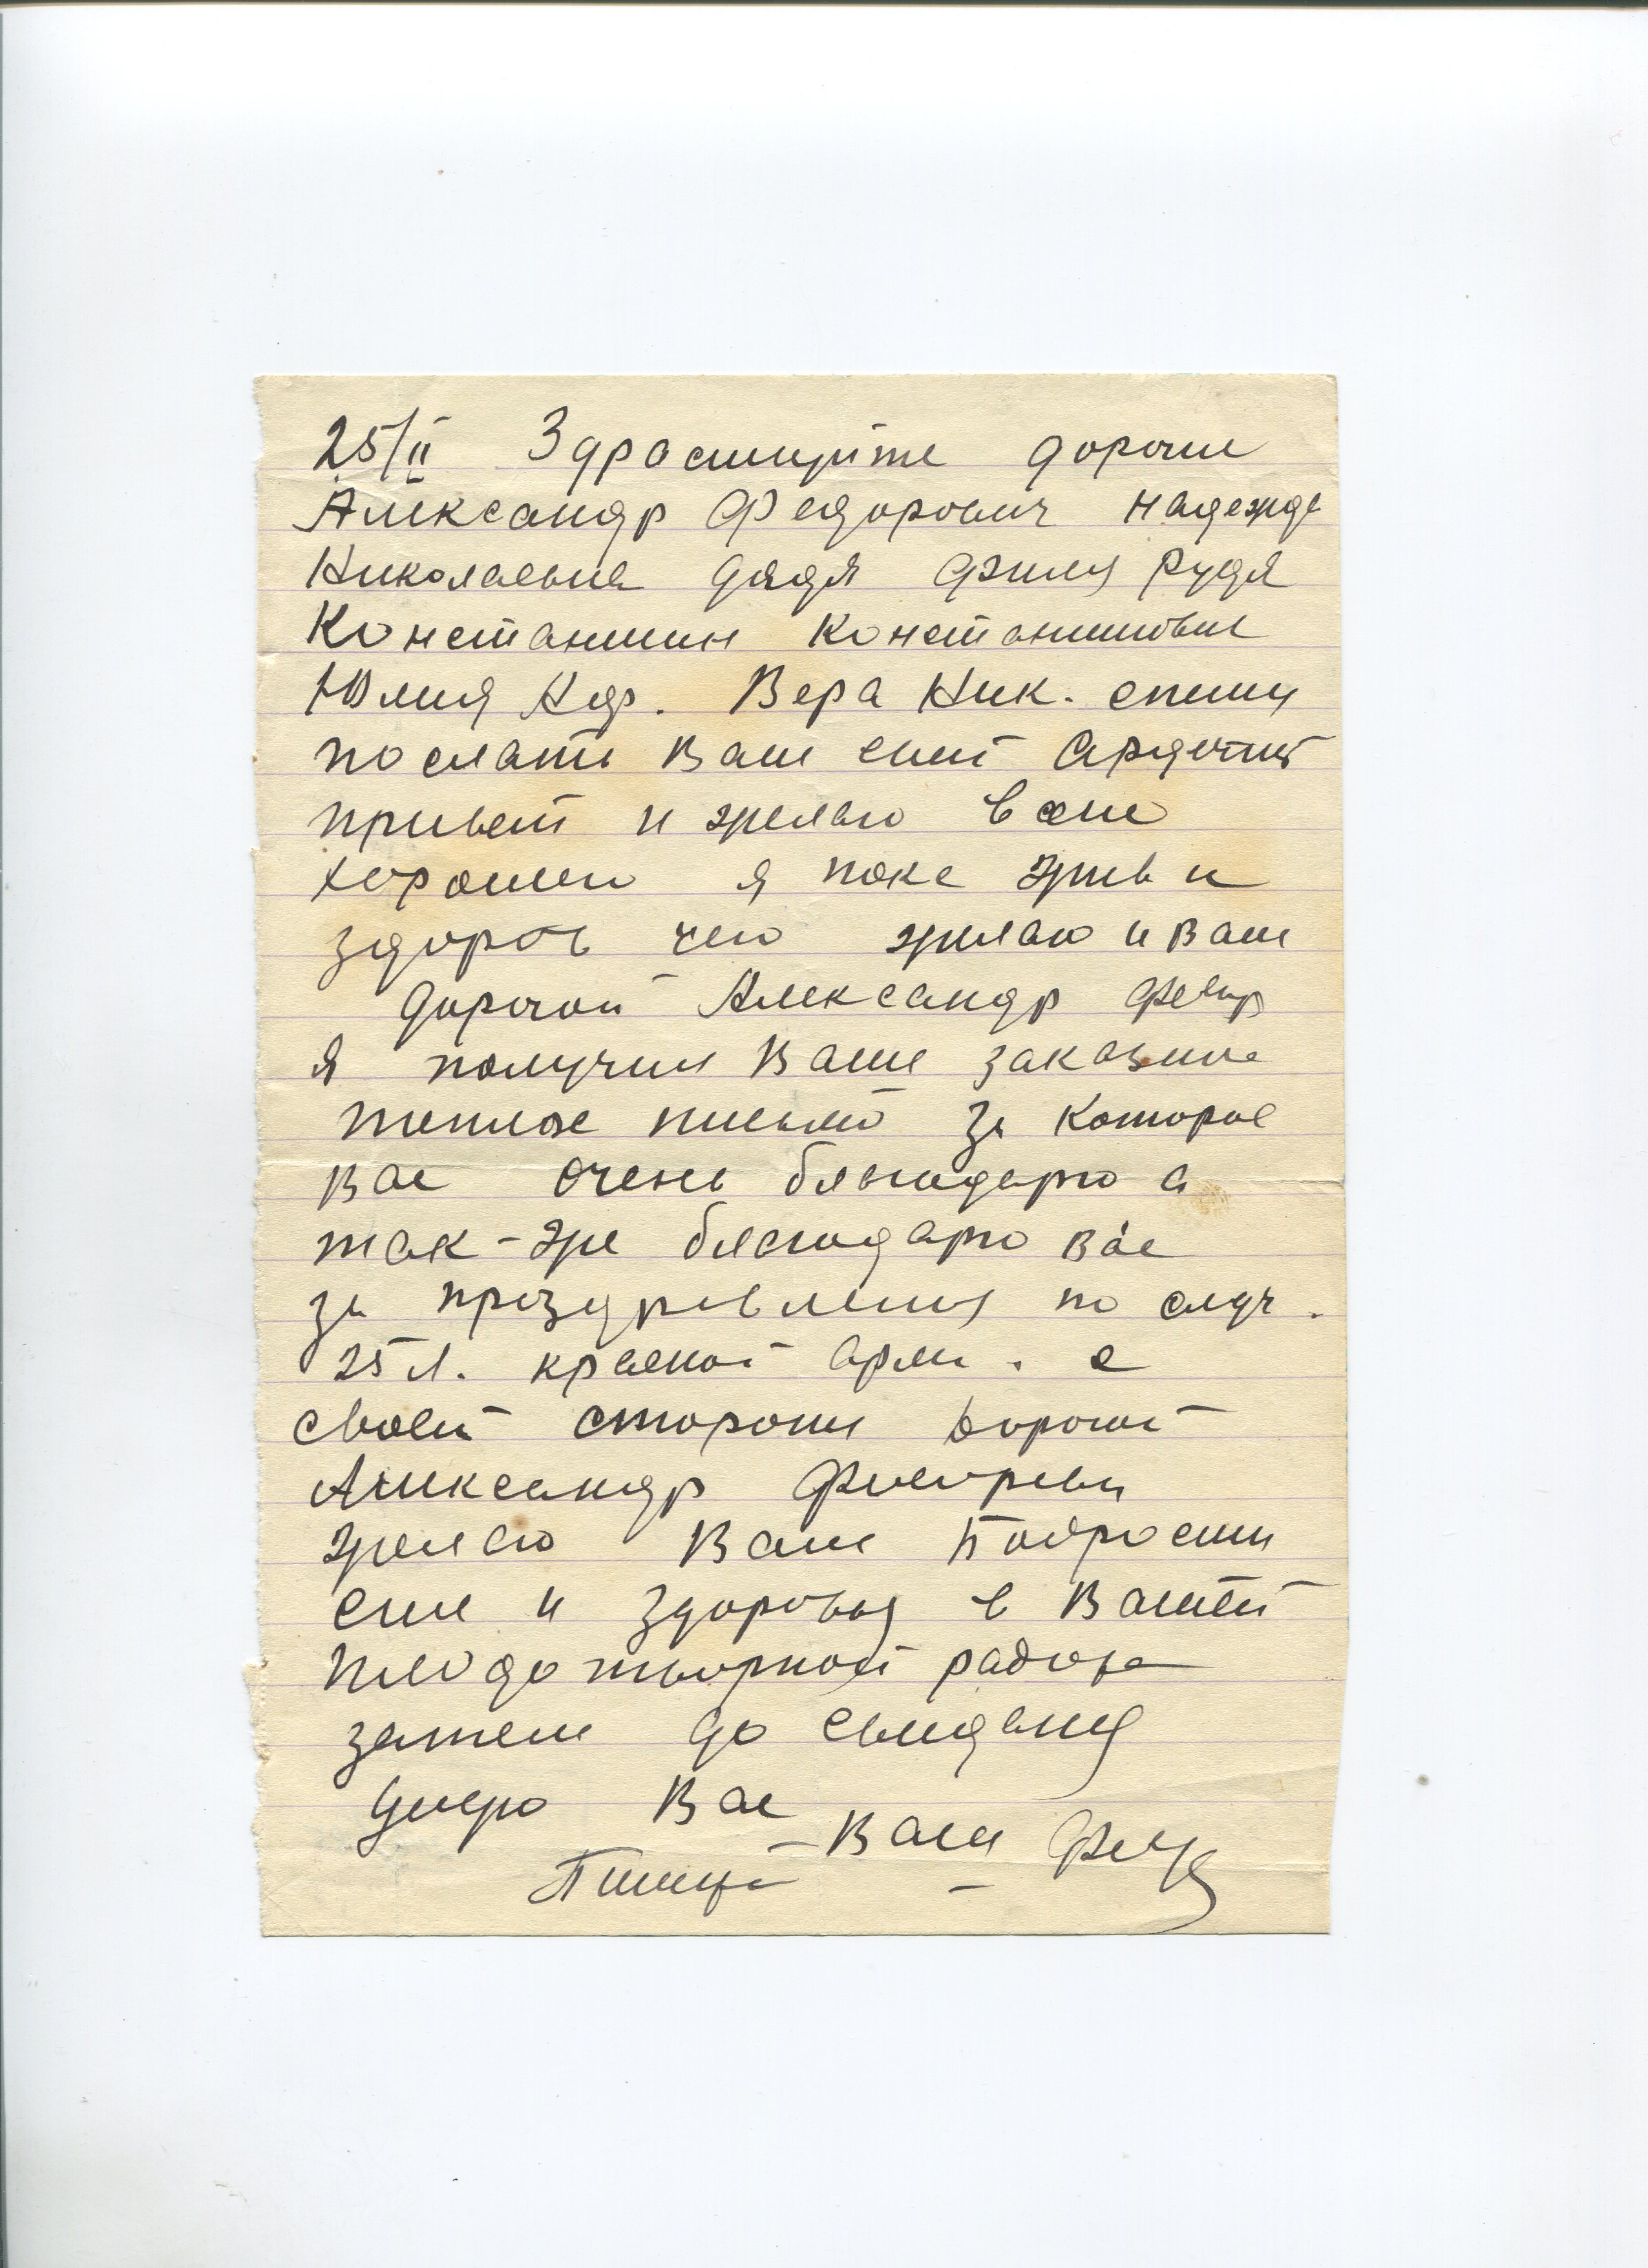 25/II Здраствуйте дорогие
Александр Федорович Надежда
Николаевна дядя Филя Рудя
Константин Константинович
Юлия Ар. Вера Ник. спешу
послать Вам свой сердечный
привет и желаю всего
хорошего я пока жив и
здоров чего желаю и Вам
Дорогой Александр Федор
я получил Ваше заказное
теплое письмо за которое
Вас очень благодарю а
так-же благодарю Вас
за празд­равления по случ.
25 л. красной Арми. с
своей стороны дорогой
Александр Федорович
желаю Вам Бодрости
сил и здоровья в Вашей
плодотворной работе
затем до свидания
Целую Вас
Ваш Федя